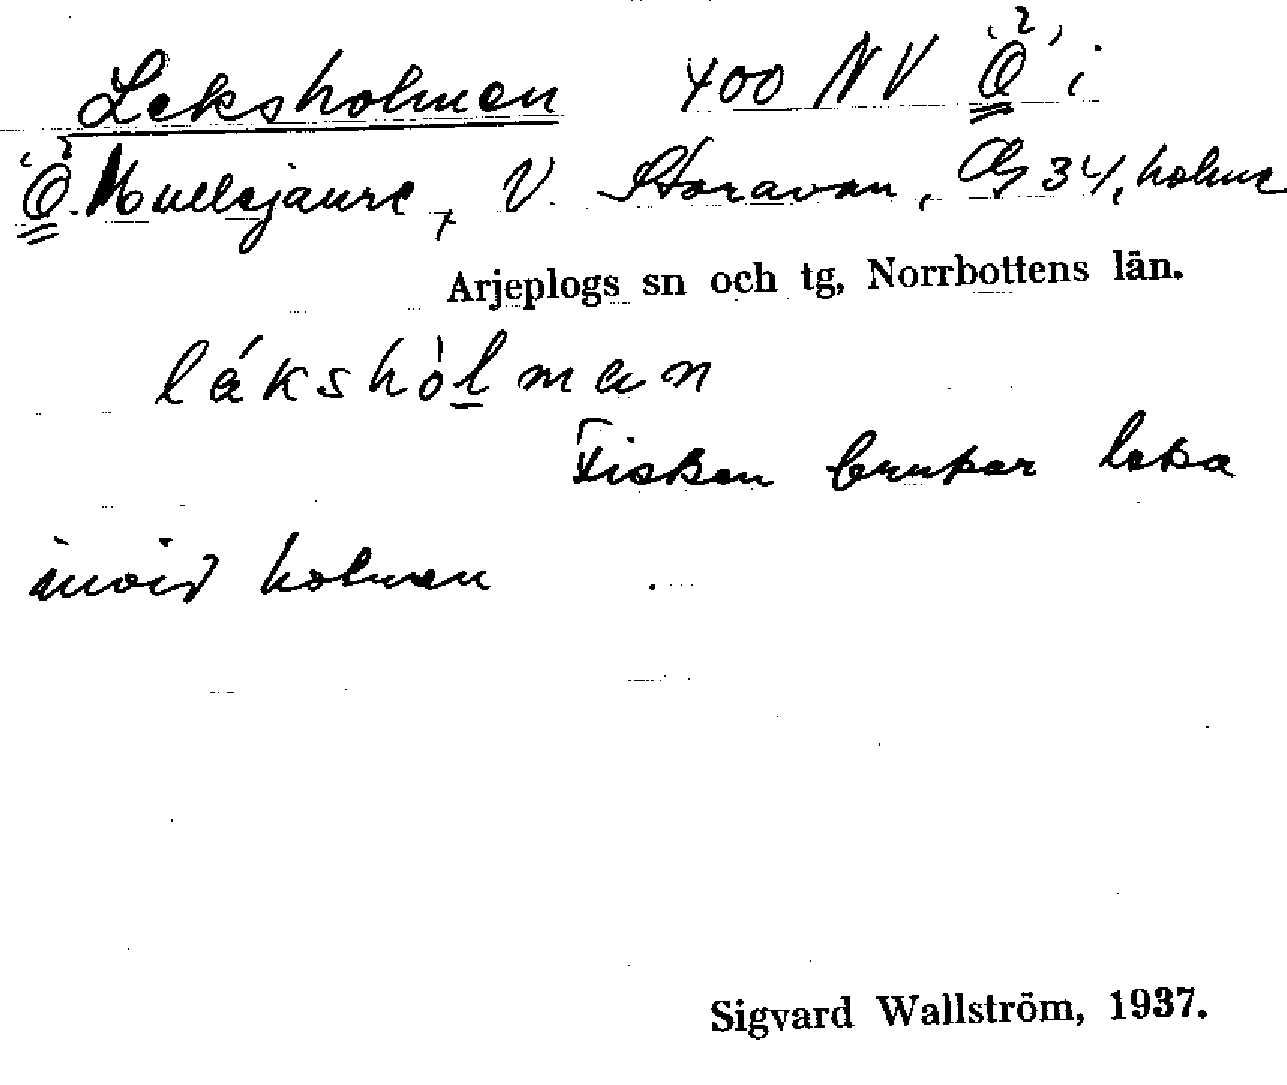 Leksholmen 400 NV Ö i
Ö. Mullejaure, V. Storavan, 34, holme
Arjeplogs sn och tg, Norrbottens län.
lákshòlman
Fisken brukar leka
invid holmen
Sigvard Wallström, 1937.